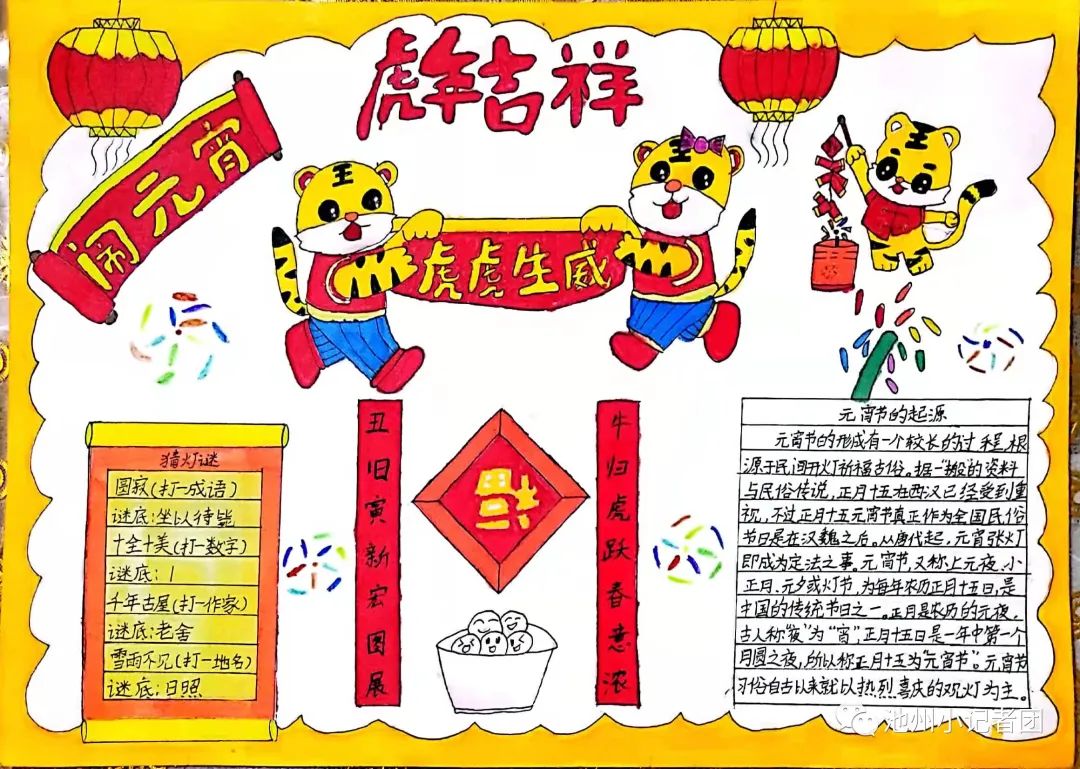 虎年吉祥
闹元宵
虎虎生威
猜灯谜
圆寂(打一成语)
谜底:坐以待毙
十全十美(打一数字)
谜底:1
千年古屋(打一作家)
谜底:老舍
雪雨不见(打一地名)
谜底:日照
丑旧寅新宏图展
福
牛归虎跃春意浓
元宵节的起源
元宵节的形成有一个较长的过程,根
源于民间开灯祈福古俗。据一般的资料
与民俗传说,正月十五在西汉已经受到重
视,不过正月十五元宵节真正作为全国民俗
节日是在汉魏之后。从唐代起,元宵张灯
即成为定法之事。元宵节,又称上元夜、小
正月、元夕或灯节,为每年农历正月十五日,是
中国的传统节日之一。正月是农历的元夜,
古人称"夜"为"宵",正月十五日是一年中第一个
月圆之夜,所以称正月十五为"元宵节"。元宵节
习俗自古以来就以热烈喜庆的观灯为主。
池州小记者团